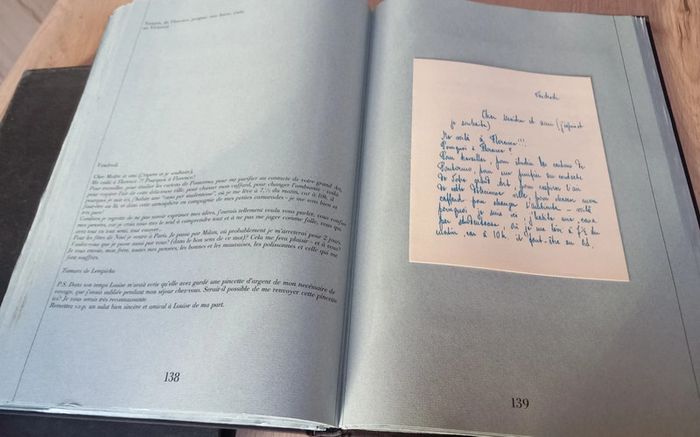 Tamara, de Florence,
au Vittoriale
Vendredi
Cher Maître et ami (j'espère et je souhaite),
Me voilà à Florence !!! Pourquoi à Florence?
Pour travailler, pour étudier les cartons de Pontormo, pour me purifier au contacte de votre grand Art,
pour respirer l'air de cette délicieuse ville, pour chasser mon caffard, pour changer l'ambiante - voilà
pourquoi je suis ici. J'habite une
très pure!
Combien je regrette de ne pas savoir exprimer mes idées, j'aurais tellement voulu vous parler, vous confier
mes pensées, car je crois vous être le seul à comprendre tout et à ne pas me juger comme folle, vous qui
avez tout vu tout senti, tout essayé...
Pour les fêtes de Noël je rentre à Paris. Je passe par Milan, où probablement je m'arrêterai pour 2 jours.
Voulez-vous que je passe aussi par vous? (dans le bon sens de ce mot)? Cela me fera plaisir - et à vous?
Je vous envoie, mon frère, toutes mes pensées, les bonnes et les mauvaises, les polissonnes et celle qui me
font souffrir.
Tamara de Lempicka
P.S. Dans son temps Louise m'avait écrit qu'elle avec gardé une pincette d'argent de mon necéssaire de
voyage, que j'avais oubliée pendant mon séjour chez-vous. Serait-il possible de me renvoyer cette pincette
ici? Je vous serais très reconnaissante.
Remettez s.v.p. un salut bien sincère et amical à Louise de ma part.
138
Vendredi
Cher Maître et ami (j'espère et
je souhaite)
Me voilà à Florence!!!
Pourquoi à Florence?
Pour travailler, pour étudier les cartons de
Pontormo, pour me purifier au contacte
de votre grand Art, pour respirer l'air
de cette délicieuse ville, pour chasser mon
caffard, pour changer l'ambiante - voilà
pourquoi je suis ici. J'habite une
où je me lève à 7½ du
matin, car à 10h. il faut être au lit.
139